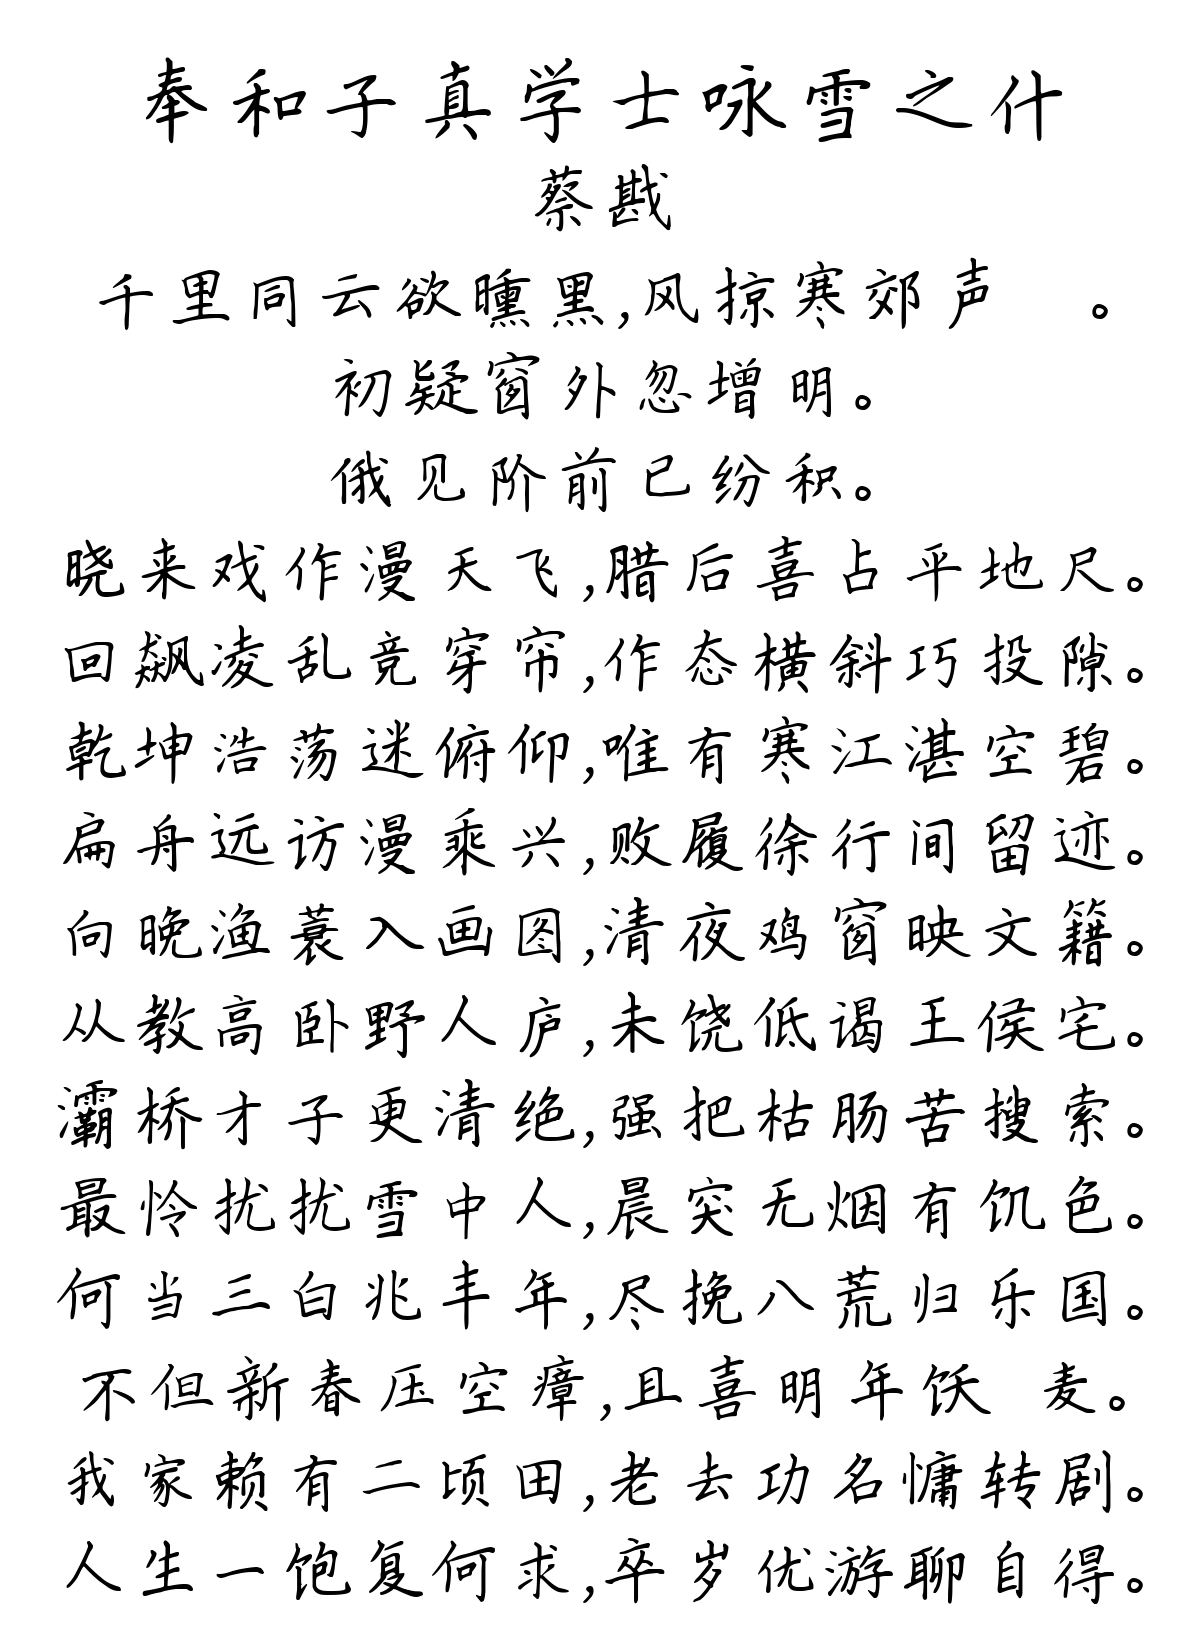 奉和子真学士咏雪之什
蔡戡
千里同云欲曛黑,风掠寒郊声 。
初疑窗外忽增明。
俄见阶前已纷积。
晓来戏作漫天飞,腊后喜占平地尺。
回飙凌乱竞穿帘,作态横斜巧投隙。
乾坤浩荡迷俯仰,唯有寒江湛空碧。
扁舟远访漫乘兴,败履徐行间留迹。
向晚渔蓑入画图,清夜鸡窗映文籍。
从教高卧野人庐,未饶低谒王侯宅。
灞桥才子更清绝,强把枯肠苦搜索。
最怜扰扰雪中人,晨突无烟有饥色。
何当三白兆丰年,尽挽八荒归乐国。
不但新春压空瘴,且喜明年饫 麦。
我家赖有二顷田,老去功名慵转剧。
人生一饱复何求,卒岁优游聊自得。